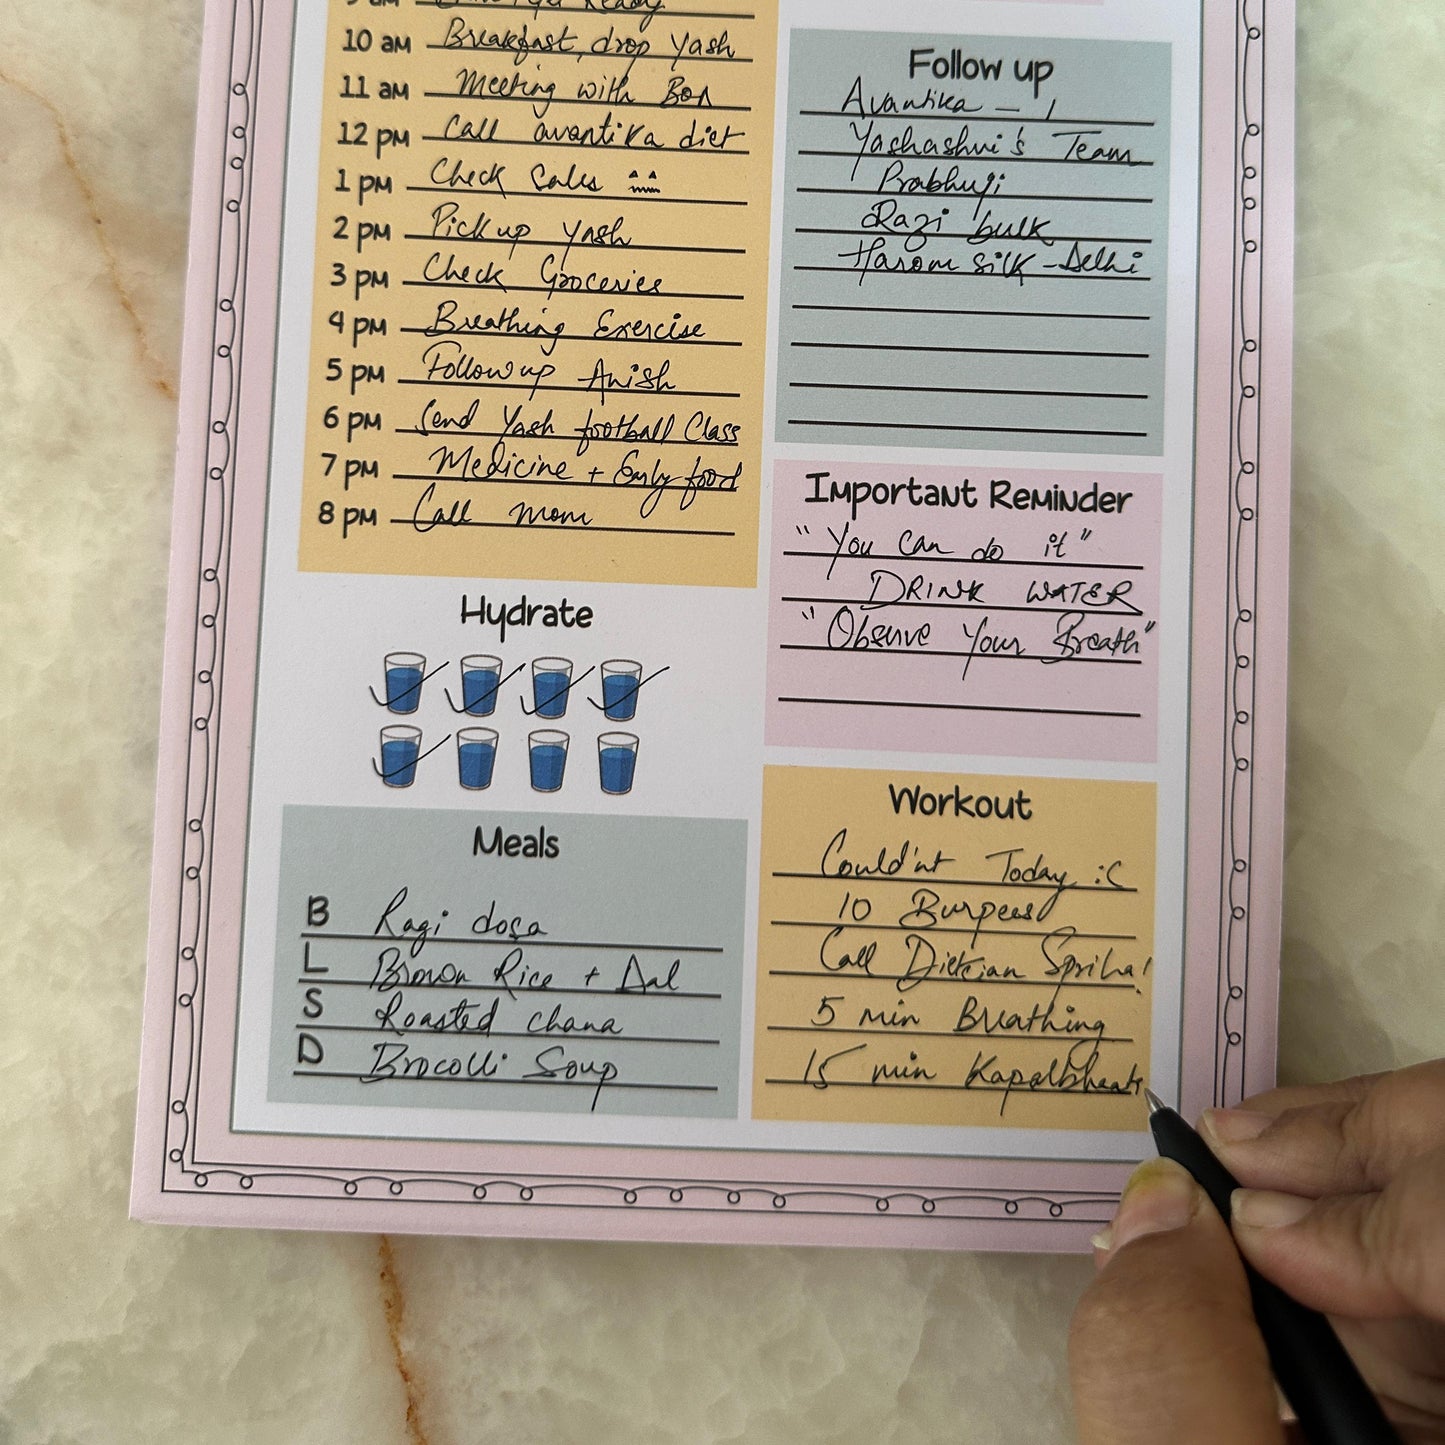 10 am Breakfast, drop Yash
11 am Meeting with
12 pm Call avantika diet
1 pm Check Sales
2 pm Pick up Yash
3 pm Check Groceries
4 pm Breathing Exercise
5 pm Follow up Anish
6 pm Send Yash football Class
7 pm Medicine + Early food
8 pm Call mom
Hydrate
Meals
B Ragi dosa
L Brown Rice + Dal
S Roasted chana
D Brocolli Soup
Follow up
Avantika - 1
Yashashvi's Team
Prabhuji
bulk
Silk - Delhi
Important Reminder
"You can do it"
DRINK WATER
"Observe Your Breath"
Workout
Could'nt Today :(
10 Burpees
Call Dietcian
5 min Breathing
15 min Kapalbhaati